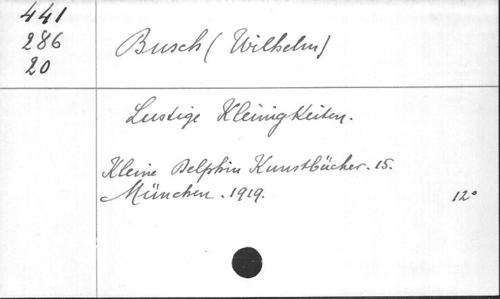 441
286
20
Busch (Wilhelm)
Lustige Kleinigkeiten.
Kleine Delphin Kunstbücher. 15.
München. 1919.
12°